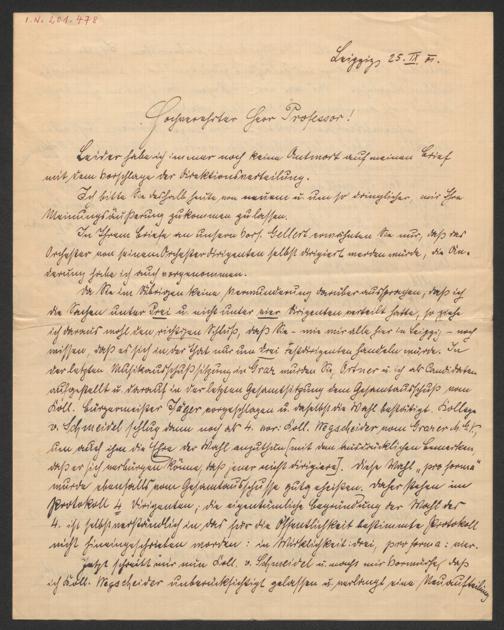 I.N. 201.478
Leipzig, 25. IX.
Hochverehrter Herr Professor!
Leider habe ich immer noch keine Antwort auf meinen Brief
mit dem Vorschlage der Direktionsverteilung.
Ich bitte Sie deshalb heute von neuem u. um so dringlicher, mir Ihre
Meinungsäußerung zukommen zu lassen.
In Ihrem Briefe an unsern Vors. Gellert erwähnten Sie nur, daß das
Orchester von seinem Orchesterdirigenten selbst dirigiert werden würde, die Än-
derung habe ich auch vorgenommen.
Da Sie im Übrigen keine Verwunderung darüber aussprachen, daß ich
die Sachen unter drei u. nicht unter vier Dirigenten verteilt hatte, so ziehe
ich daraus wohl den richtigen Schluß, daß Sie – wie wir alle hier in Leipzig – noch
wissen, daß es sich in der That nur um drei Festdirigenten handeln würde. In
der letzten Musikausschußsitzung in Graz wurden Sie, Ortner u. ich als Candidaten
aufgestellt u. darauf in der letzten Gesamtsitzung dem Gesamtausschuß vom
Koll. Bürgermeister Jäger vorgeschlagen u. daselbst die Wahl bestätigt. Kollege
v. Schmeidel schlug dann noch als 4. vor: Koll. Wegscheider vom Grazer M.G.V.,
um auch ihm die Ehre der Wahl anzuthun [mit dem ausdrücklichen Bemerken,
daß er sich verbürgen könne, daß jener nicht dirigiere]. Diese Wahl „pro forma"
wurde ebenfalls vom Gesamtausschusse gutgeheißen. Daher stehen im
Protokoll 4 Dirigenten; die eigentümliche Begründung der Wahl des
4. ist selbstverständlich in das für die Öffentlichkeit bestimmte Protokoll
nicht hineingeschrieben worden: in Wirklichkeit: drei, pro forma: vier.
Jetzt schreibt mir nun Koll. v. Schmeidel u. macht mir Vorwürfe, daß
ich Koll. Wegscheider unberücksichtigt gelassen u. verlangt eine Neuaufteilung